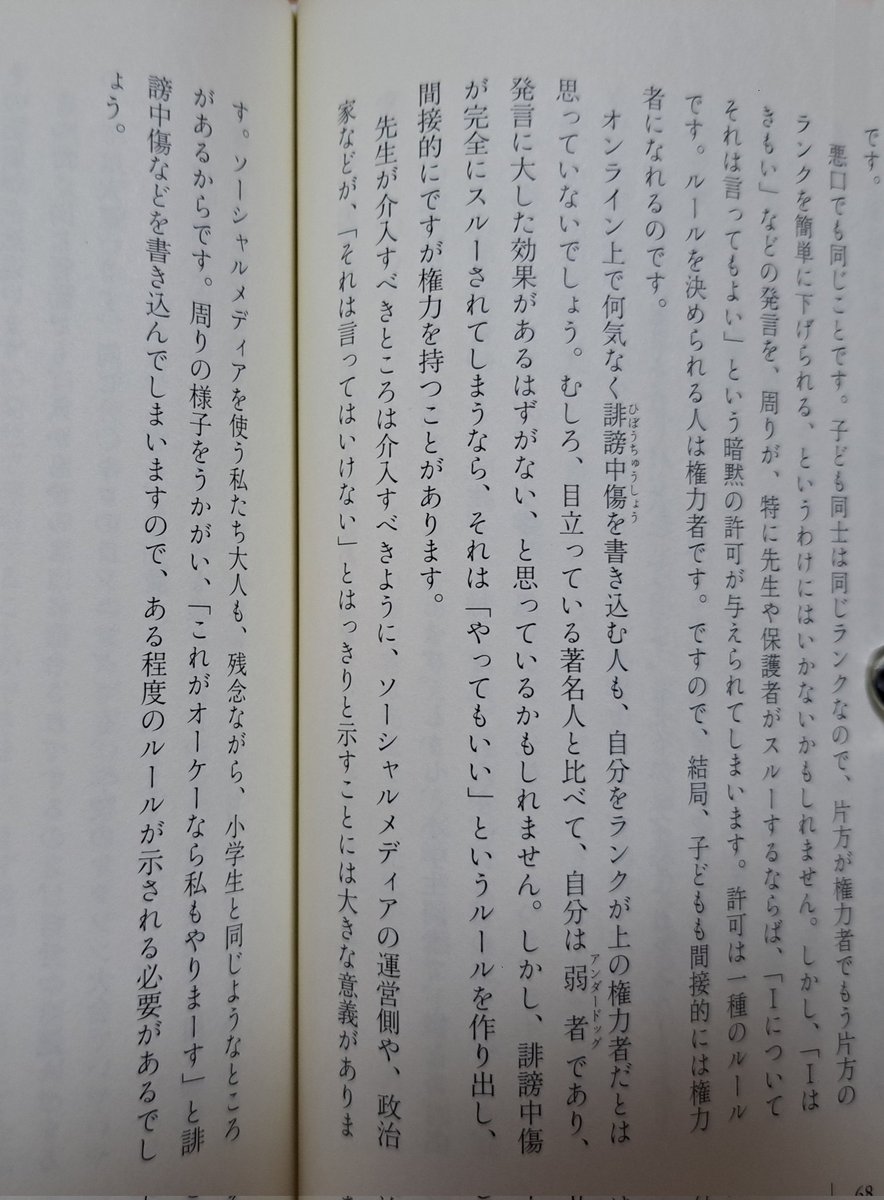 です。
悪口でも同じことです。子ども同士は同じランクなので、片方が権力者でもう片方の
ランクを簡単に下げられる、というわけにはいかないかもしれません。しかし、「Iは
きもい」などの発言を、周りが、特に先生や保護者がスルーするならば、「Iについて
それは言ってもよい」という暗黙の許可が与えられてしまいます。許可は一種のルール
です。ルールを決められる人は権力者です。ですので、結局、子どもも間接的には権力
者になれるのです。
オンライン上で何気なく誹謗中傷を書き込む人も、自分をランクが上の権力者だとは
思っていないでしょう。むしろ、目立っている著名人と比べて、自分は弱者であり、
発言に大した効果があるはずがない、と思っているかもしれません。しかし、誹謗中傷
が完全にスルーされてしまうなら、それは「やってもいい」というルールを作り出し、
間接的にですが権力を持つことがあります。
先生が介入すべきところは介入すべきように、ソーシャルメディアの運営側や、政治
家などが、「それは言ってはいけない」とはっきりと示すことには大きな意義がありま
す。ソーシャルメディアを使う私たち大人も、残念ながら、小学生と同じようなところ
があるからです。周りの様子をうかがい、「これがオーケーなら私もやりまーす」と誹
謗中傷などを書き込んでしまいますので、ある程度のルールが示される必要があるでし
ょう。
68